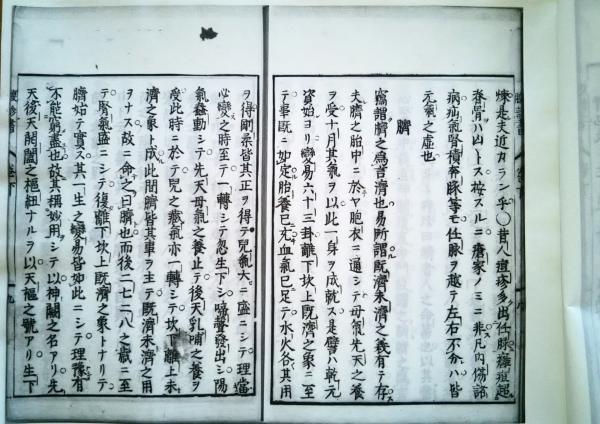 煉是夫近カランヲ○昔人遺疹多出任脉癰疽起
脊骨ハ四トス按スルニ瘡家ノミニ非凡内傷諸
病疝氣腎積奔豚等モ任脉ヲ越テ左右不分ハ皆
元氣之虚也
臍
竊謂臍之為言濟也易所謂既濟未濟之義有テ存
夫臍之胎中ニ於ヤ胞衣ニ通シテ母氣先天之養
ヲ受十月其氣ヲ以此一身ヲ成就ス是譬ハ乾元
資始ヨリ變易六十三卦離下坎上既濟之象ニ至
テ事既ニ如定胎養已充血氣已足テ水火各其用
ヲ得剛柔皆其正ヲ得テ兒氣大ニ盛ニシテ理當
必變之時至テ一轉シテ忽生下シ啼聲發出シ陽
氣蠢動シテ先天母氣之養止テ後天乳哺之養ヲ
受此時ニ於テ兒之臍氣亦一轉シテ坎下離上未
濟之象ト成此間臍皆其車ヲ主テ既濟未濟之用
ヲナス故ニ命之曰臍也而後二七二八之歳ニ至
テ腎氣盛ニシテ復離下坎上既濟之象トナリテ
臍始テ實ス其一生之變易皆如此ニシテ理豫有
不能窮盡也故其稱妙用シテ以神闕之名アリ先
天後天開闔之樞紐ナルヲ以天樞之號アリ生下